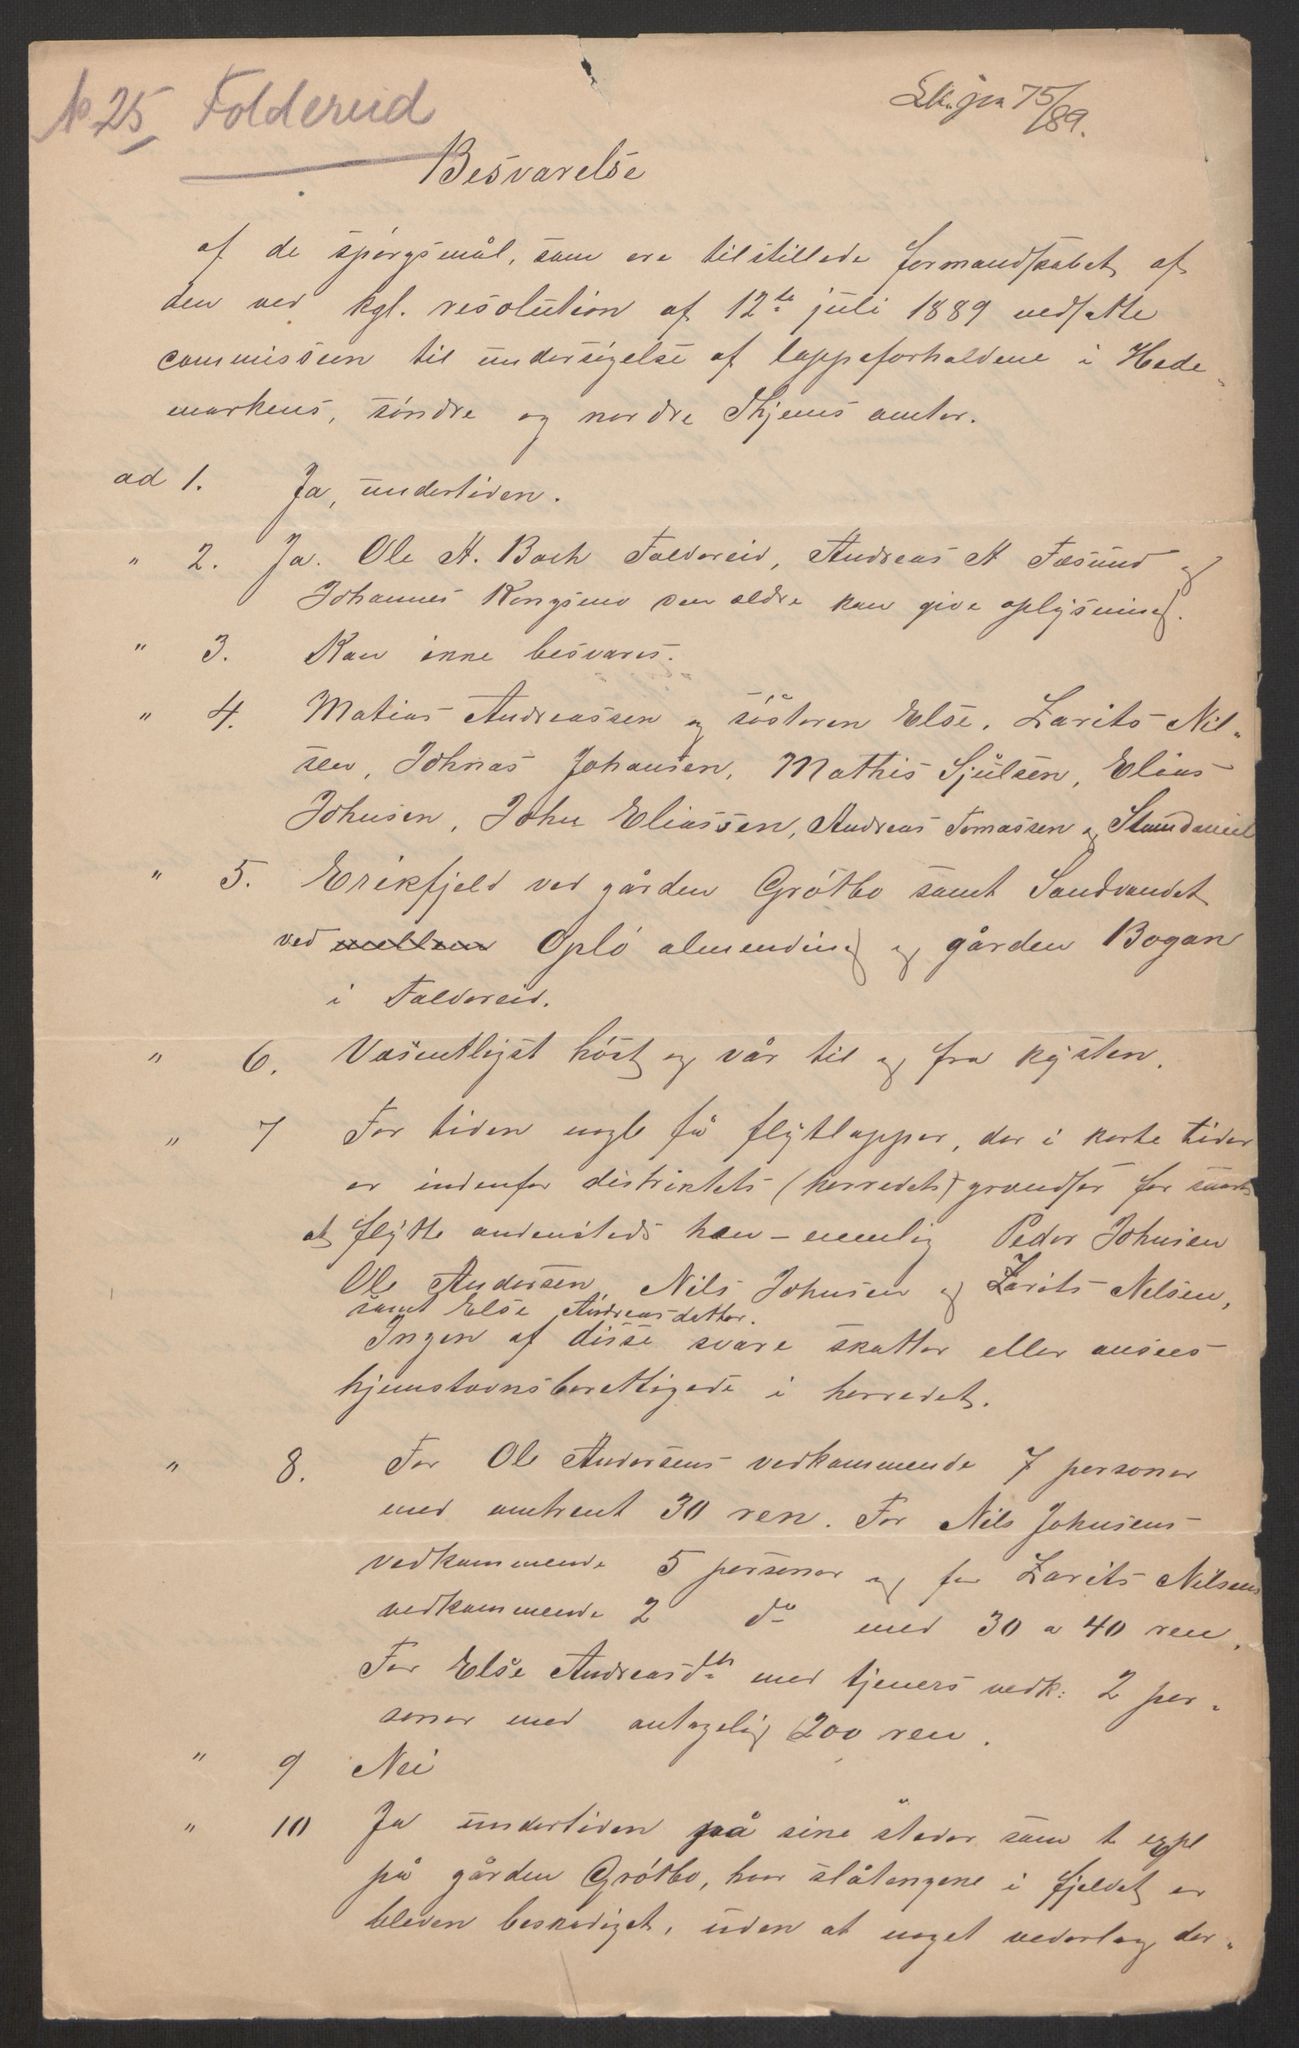 № 25 Foldereid
Lk. jn 75/89.
Besvarelse
af de spørgsmål, som ere tilstillede formandskabet af
den ved kgl. resolution af 12te juli 1889 nedsatte
commission til undersøgelse af lappeforholdene i Hede-
markens, søndre og nordre Thjems amter.
ad 1. Ja, undertiden.
" 2. Ja. Ole A. Bach Foldereid, Andreas A
Johannes Kongsmo den ældre kan give oplysning.
" 3. Kan ikke besvares.
" 4. Matias Andreassen og søsteren Else. Zarits Nil-
sen, Johnas Johansen, Mathis Sjulsen, Elias
Johnsen, John Eliassen, Andreas Tomassen og
" 5. Erikfjeld ved gården Grøtbo samt Sandvandet
ved mellem Oplø almending og gården Bogan
i Foldereid.
" 6. Væsentligst høst og vår til og fra kysten.
" 7 For tiden nogle få flytlapper, der i korte tider
er indenfor distriktets (herredets) grændser for snart
at flytte andensteds hen – nemlig Peder Johnsen
Ole Andersen, Nils Johnsen og Zarits Nilsen,
samt Else Andreasdatter.
Ingen af disse svare skatter eller ansees
hjemstavnsberettigede i herredet.
" 8. For Ole Andersens vedkommende 7 personer
med omtrent 30 ren. For Nils Johnsens
vedkommende 5 personer og for Zarits Nilsens
vedkommende 2 do med 30 a 40 ren.
For Else Andreasdtr med tjeners vedk: 2 per-
soner med antagelig 200 ren.
" 9 Nei
" 10 Ja undertiden på sine steder som t expl
på gården Grøtbo, hvor slåtengene i fjeldet er
bleven beskadiget, uden at noget vederlag der-